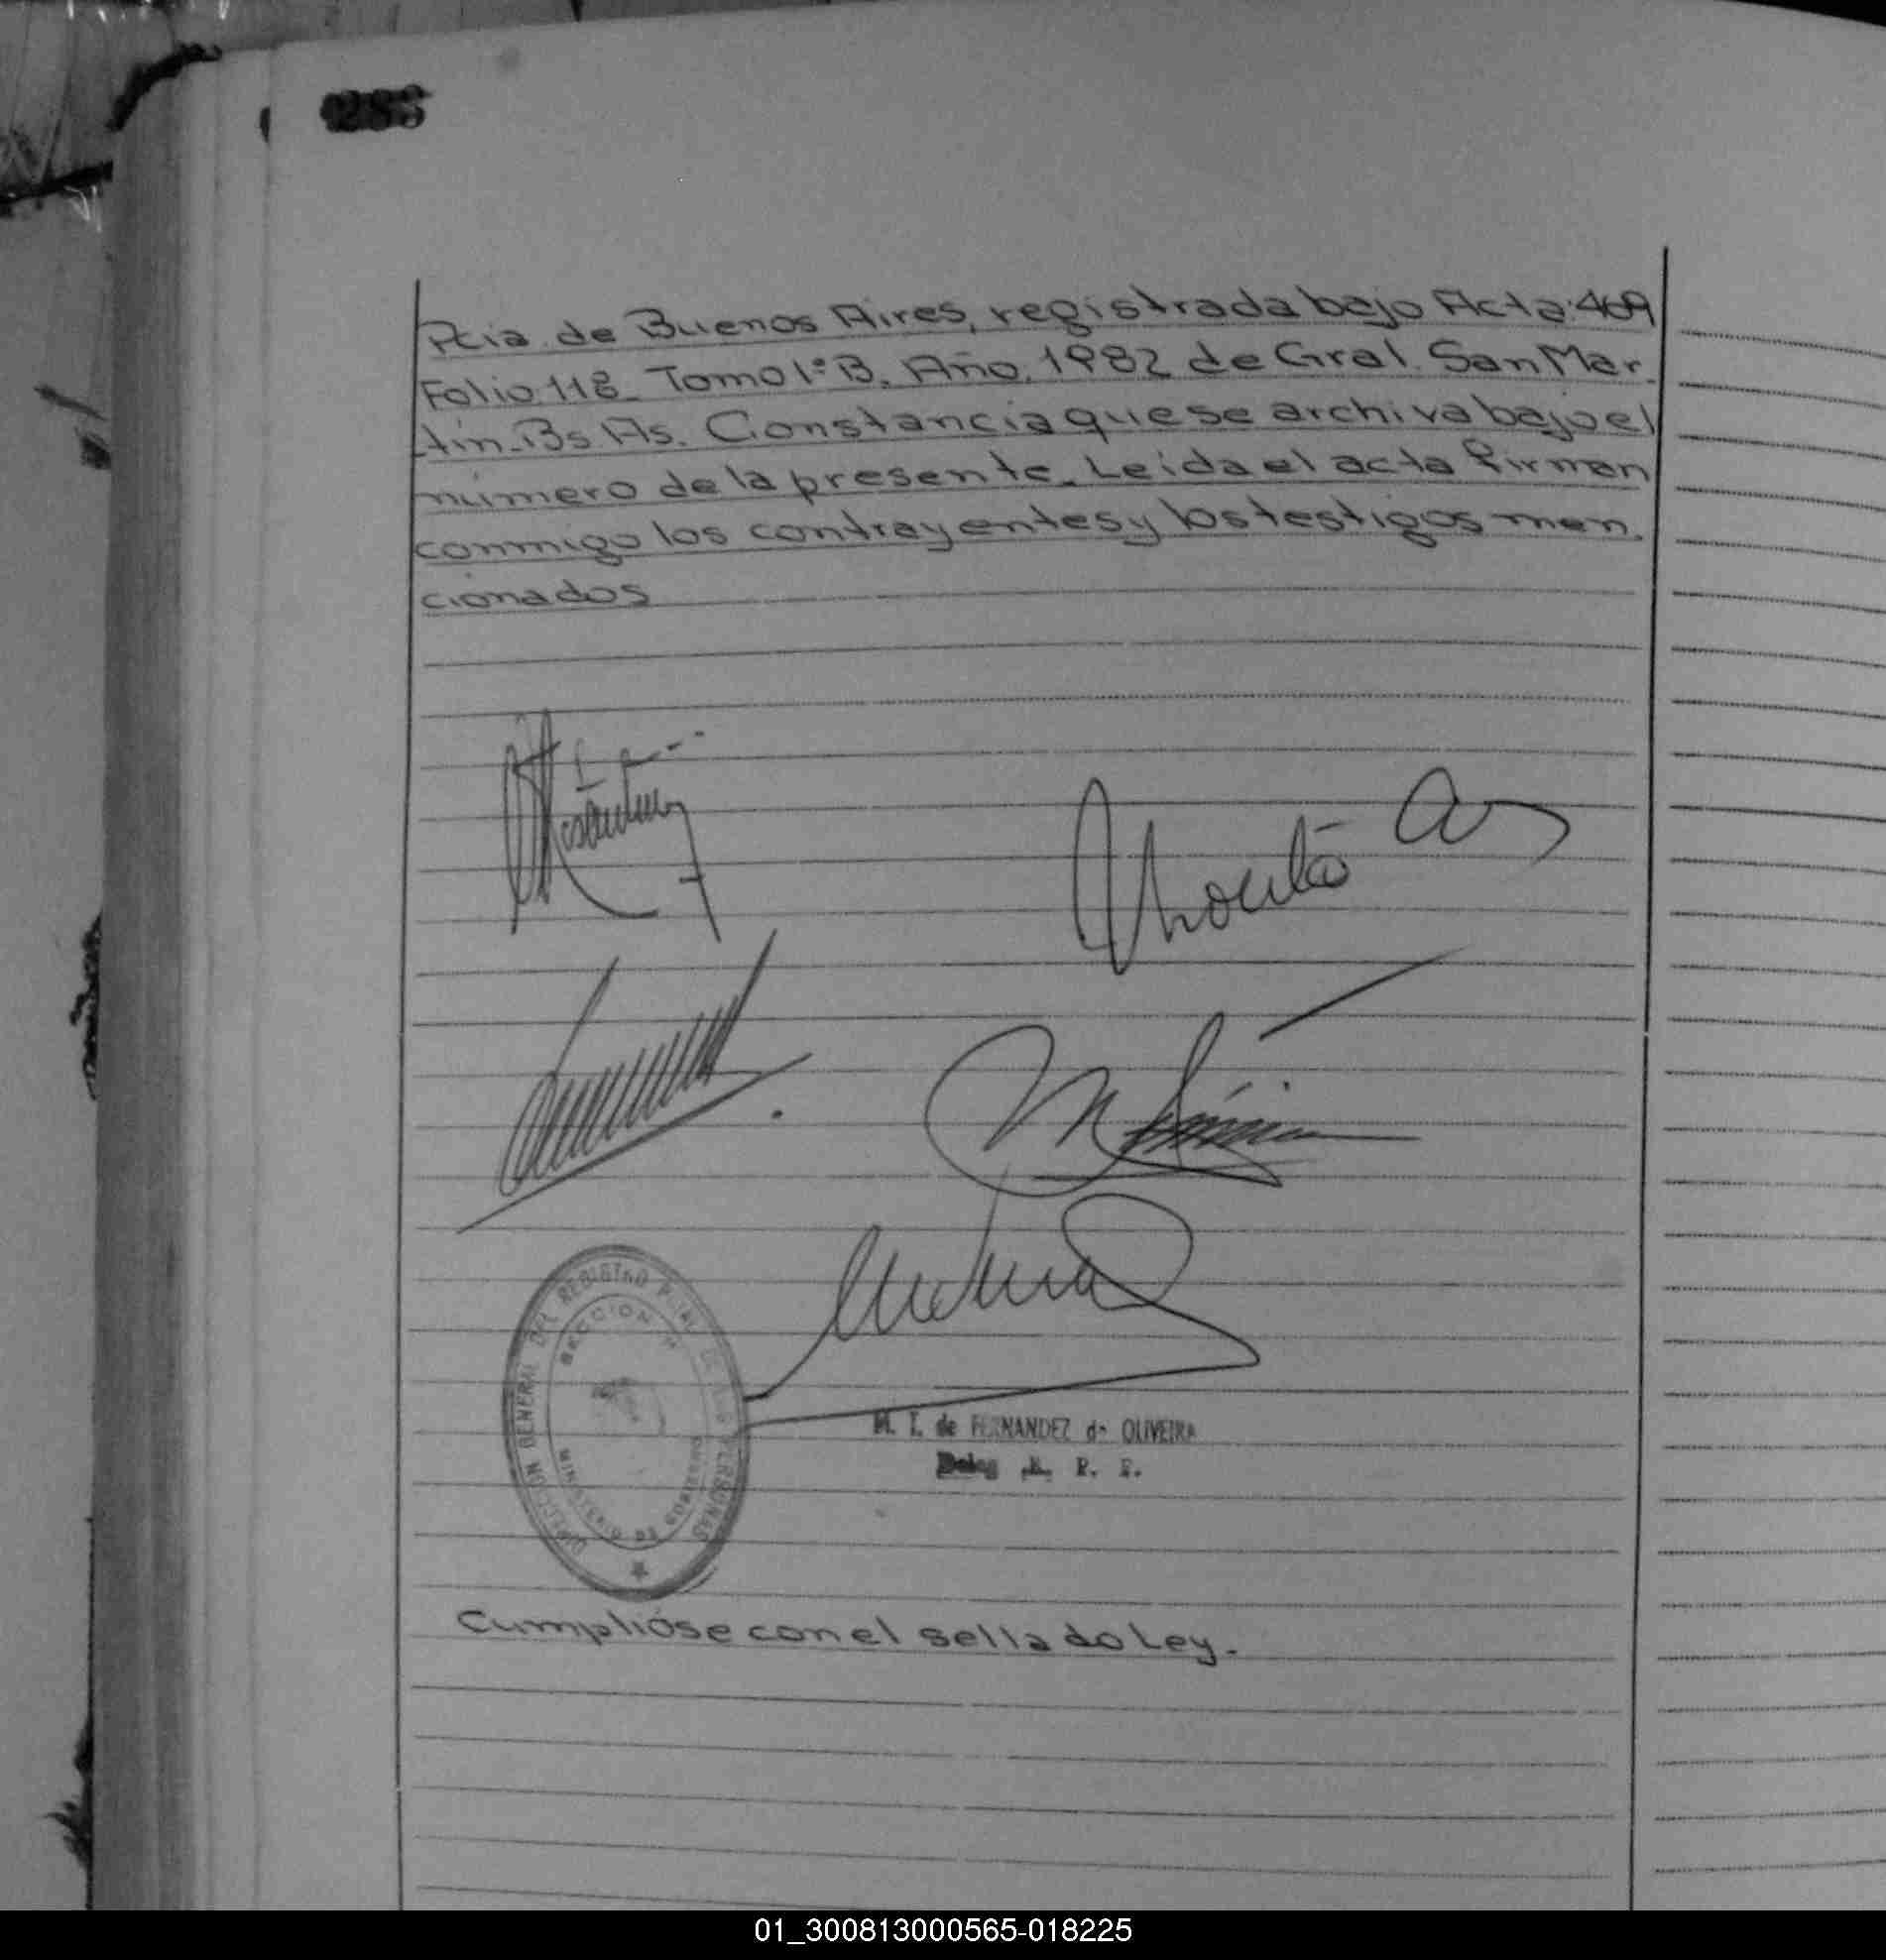 Pcia. de Buenos Aires, registrada bajo Acta: 469
Folio 118_ Tomo 1º B. Año, 1982 de Gral. San Mar_
tín_Bs As. Constancia que se archiva bajo el
número de la presente_ Leída el acta firman
conmigo los contrayentes y los testigos men_
cionados
DIRECCION GENERAL DEL REGISTRO DE LAS PERSONAS
SECCION
MINISTERIO DE GOBIERNO
M. T. de FERNANDEZ de OLIVEIRA
Cumplióse con el sellado Ley.-
01_300813000565-018225